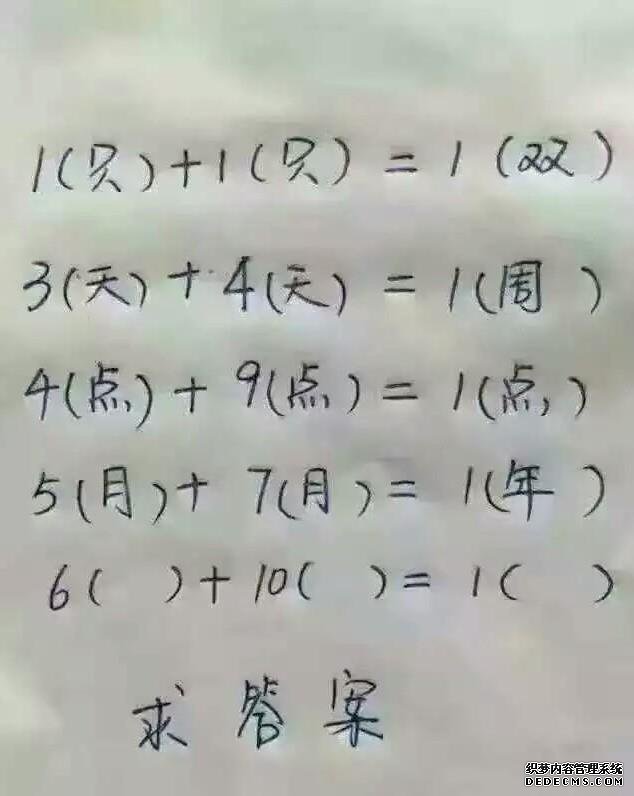 1(只)+1(只)=1(双)
3(天)+4(天)=1(周)
4(点)+9(点)=1(点)
5(月)+7(月)=1(年)
6( )+10( )=1( )
求答案
织梦内容管理系统
DEDECMS.COM